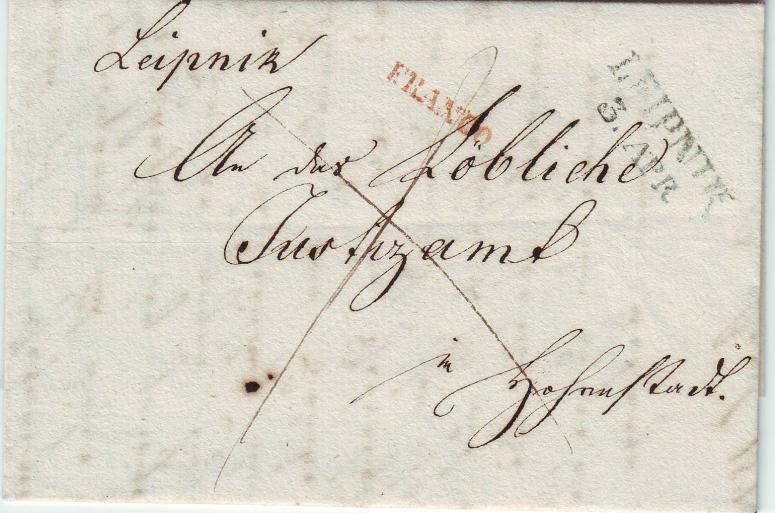 Leipnik
FRANCO
LEIPNIK
3. APR
An das Löbliche
Justizamt
in Hohenstadt.